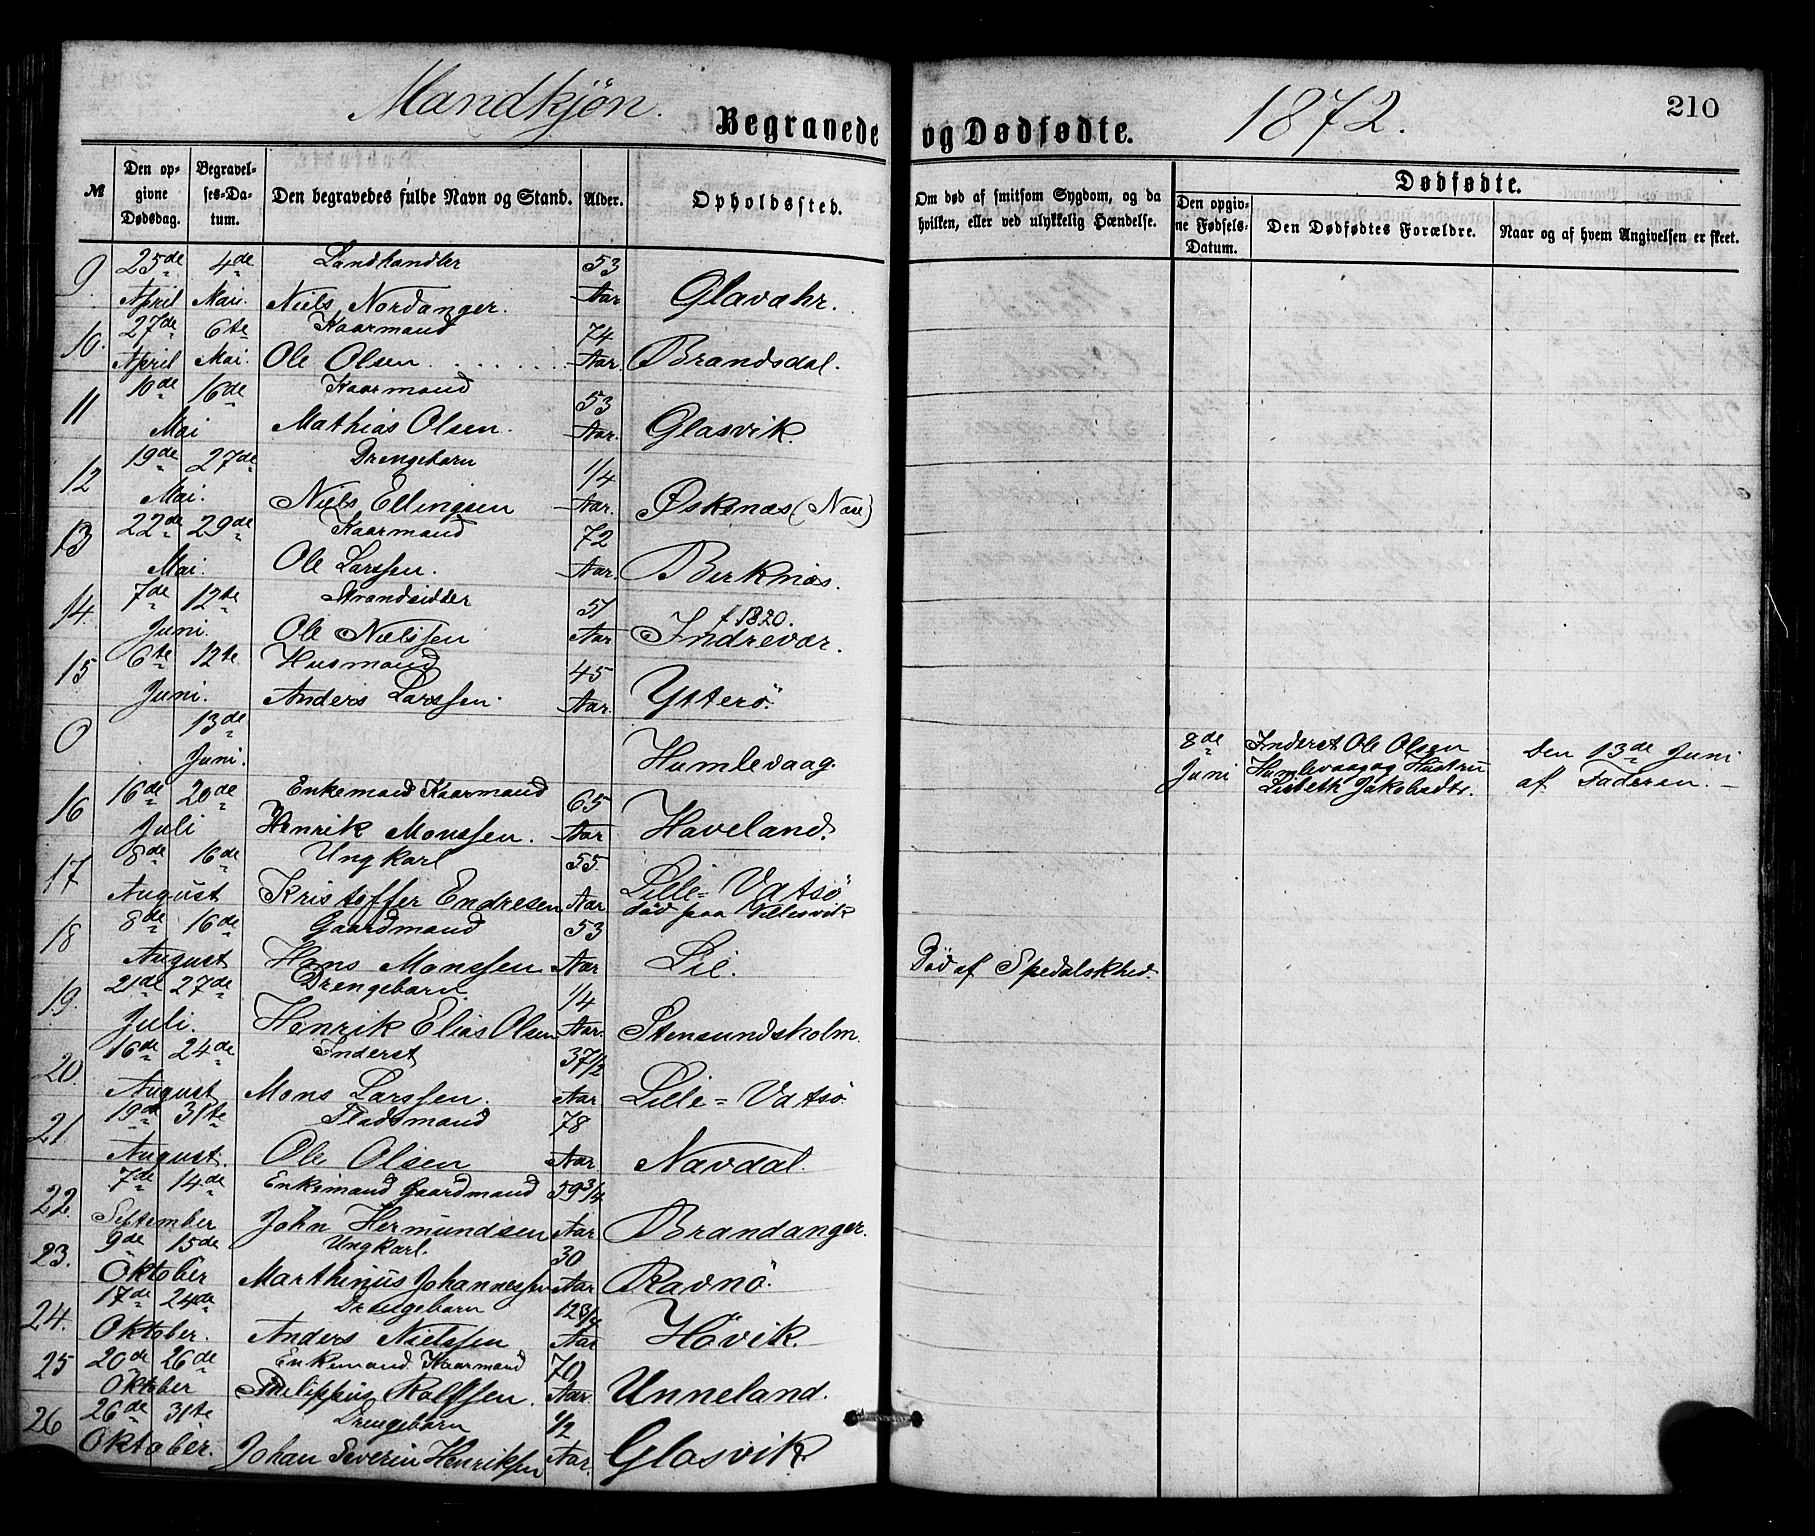 Mandkjøn. Begravede og Dødfødte. 1872. 210
№ Den opgivne Dødsdag. Begravelses-Datum. Den begravedes fulde Navn og Stand. Alder. Opholdssted. Om død af smitsom Sygdom, og da hvilken, eller ved ulykkelig Hændelse. Dødfødte. Den opgivne Fødsels-Datum. Den Dødfødtes Forældre. Naar og af hvem Angivelsen er skeet.
9. 25de 4de Landhandler 53
April Mai. Niels Nordanger. Aar Glavahr.
10. 27de 6te Kaarmand 74
April Mai. Ole Olsen Aar. Brandsdal.
11 10de 16de Kaarmand 53
Mai Mathias Olsen. Aar. Glasvik.
12 19de 27de Drengebarn 1/4
Mai. Niels Ellingsen Aar. Øskenæs (Nese)
13 22de 29de Kaarmand 72
Mai. Ole Larssen. Aar. Birknæs.
14. 7de 12te Strandsidder 51 f 1820.
Juni. Ole Nielssen Aar Indrevær.
15 6te 12te. Husmand 45
Juni. Anders Larssen. Aar. Ytterö.
0 13de
Juni. Humlevaag. 8de Juni Inderst Ole Olsen Humlevaag og Hustru Lisbeth Jakobsdtr. Den 13de Juni af Faderen.
16 16de 20de Enkemand Kaarmand 65
Juli Henrik Monssen. Aar Haveland.
17 8de 16de Ungkarl 55.
August Kristoffer Endresen Aar Lille-Vatsö
død paa Villesvik
18 8de 16de Gaardmand 53
August Hans Monssen Aar Lie. Død af Spedalskhed.
19. 21de 27de Drengebarn. 1/4
Juli. Henrik Elias Olsen Aar. Stensundsholm.
20. 16de 24de Inderst 37 1/2
August Mons Larssen. Aar Lille-Vatsö.
21. 19de 31te Pladsmand 78
August. Ole Olsen Aar. Navdal.
22. 7de 14de Enkemand Gaardmand 59 3/4
September John Hermundsen Aar Brandanger.
23. 9de 15de Ungkarl. 30
Oktober Marthinus Johannessen Aar Ravnö.
24. 17de 24de Drengebarn 12 3/4
Oktober. Anders Nielssen Aar Hövik.
25 20de 26de Enkemand Kaarmand 70
Oktober Philippus Rolfssen. Aar. Unneland.
26 26de 31te Drengebarn 1/2
Oktober. Johan Severin Henriksen Aar. Glasvik